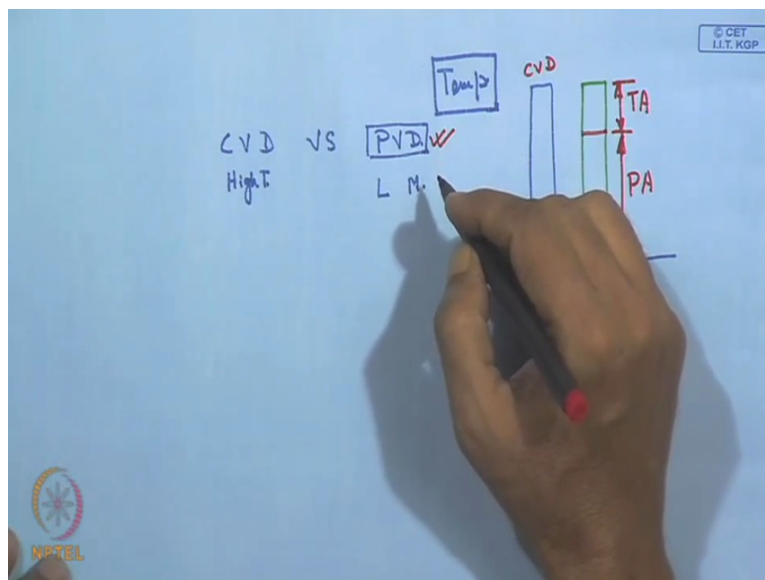 © CET
I.I.T. KGP
Temp
CVD
TA
CVD VS PVD
PA
High T.
L M.
NPTEL